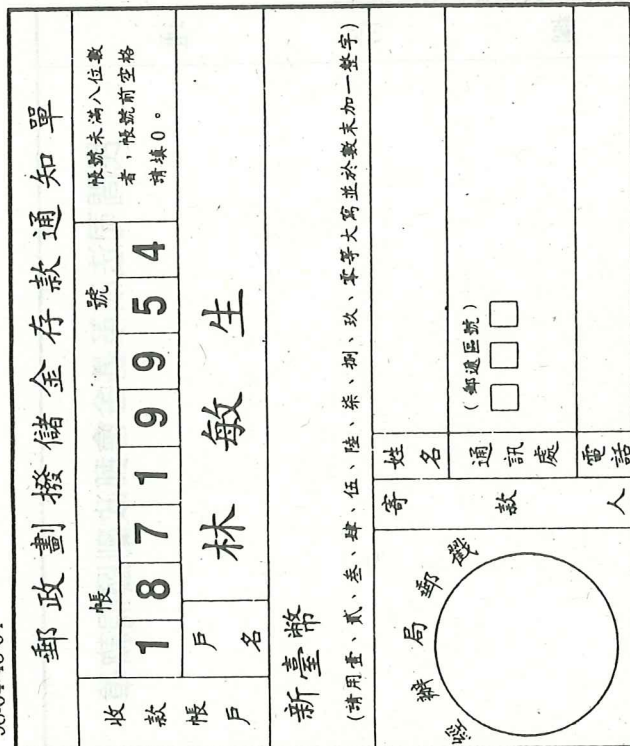 郵政劃撥儲金存款通知單
收款帳戶
帳號
18719954
帳號未滿八位數
者，帳號前空格
請填0。
戶名
林敏生
新臺幣
(請用壹、貳、叁、肆、伍、陸、柒、捌、玖、零等大寫並於數末加一整字)
寄款人
姓名
通訊處
(郵遞區號)
電話
經辦局郵戳